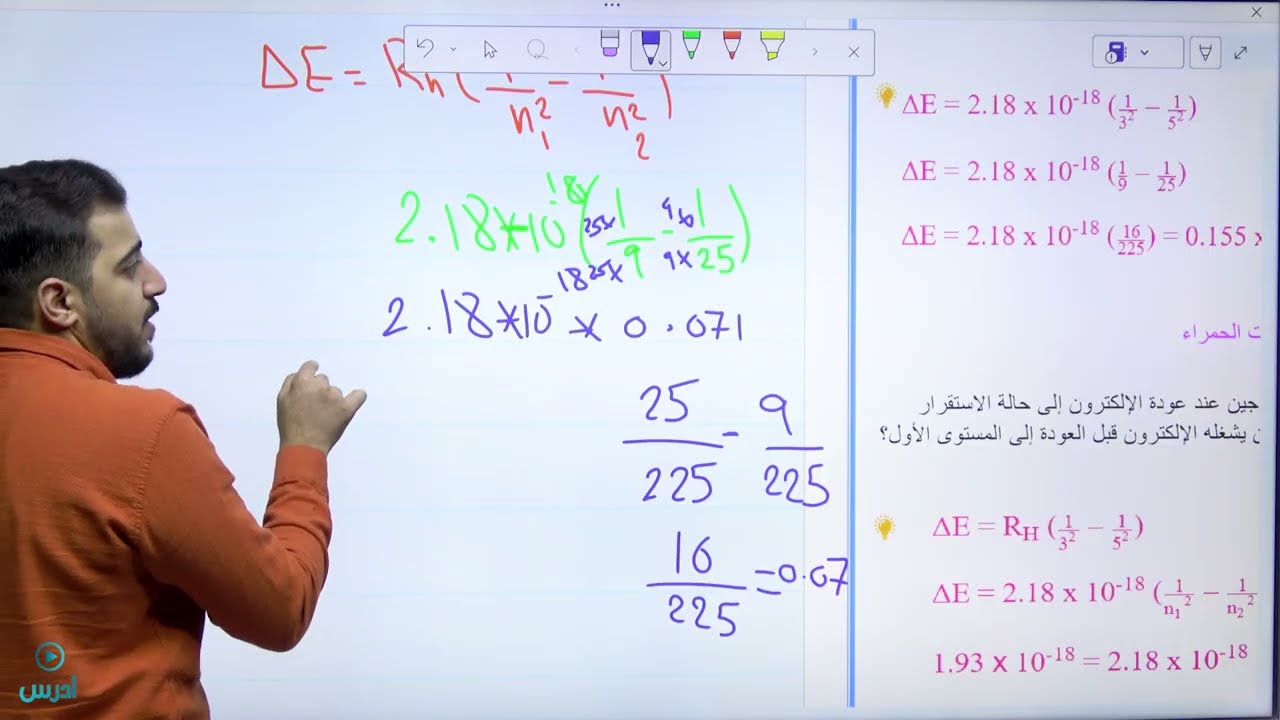 ΔE = R_H (1/n₁² − 1/n₂²)
2.18*10⁻¹⁸ × (25×1/25×9 − 9×1/9×25)
2.18*10⁻¹⁸ * 0.071
25/225 − 9/225
16/225 = 0.07
ΔE = 2.18 x 10⁻¹⁸ (1/3² − 1/5²)
ΔE = 2.18 x 10⁻¹⁸ (1/9 − 1/25)
ΔE = 2.18 x 10⁻¹⁸ (16/225) = 0.155 x
الحمراء
عند عودة الإلكترون إلى حالة الاستقرار
يشغله الإلكترون قبل العودة إلى المستوى الأول؟
ΔE = R_H (1/3² − 1/5²)
ΔE = 2.18 x 10⁻¹⁸ (1/n₁² − 1/n₂²
1.93 x 10⁻¹⁸ = 2.18 x 10⁻¹⁸
ادرس